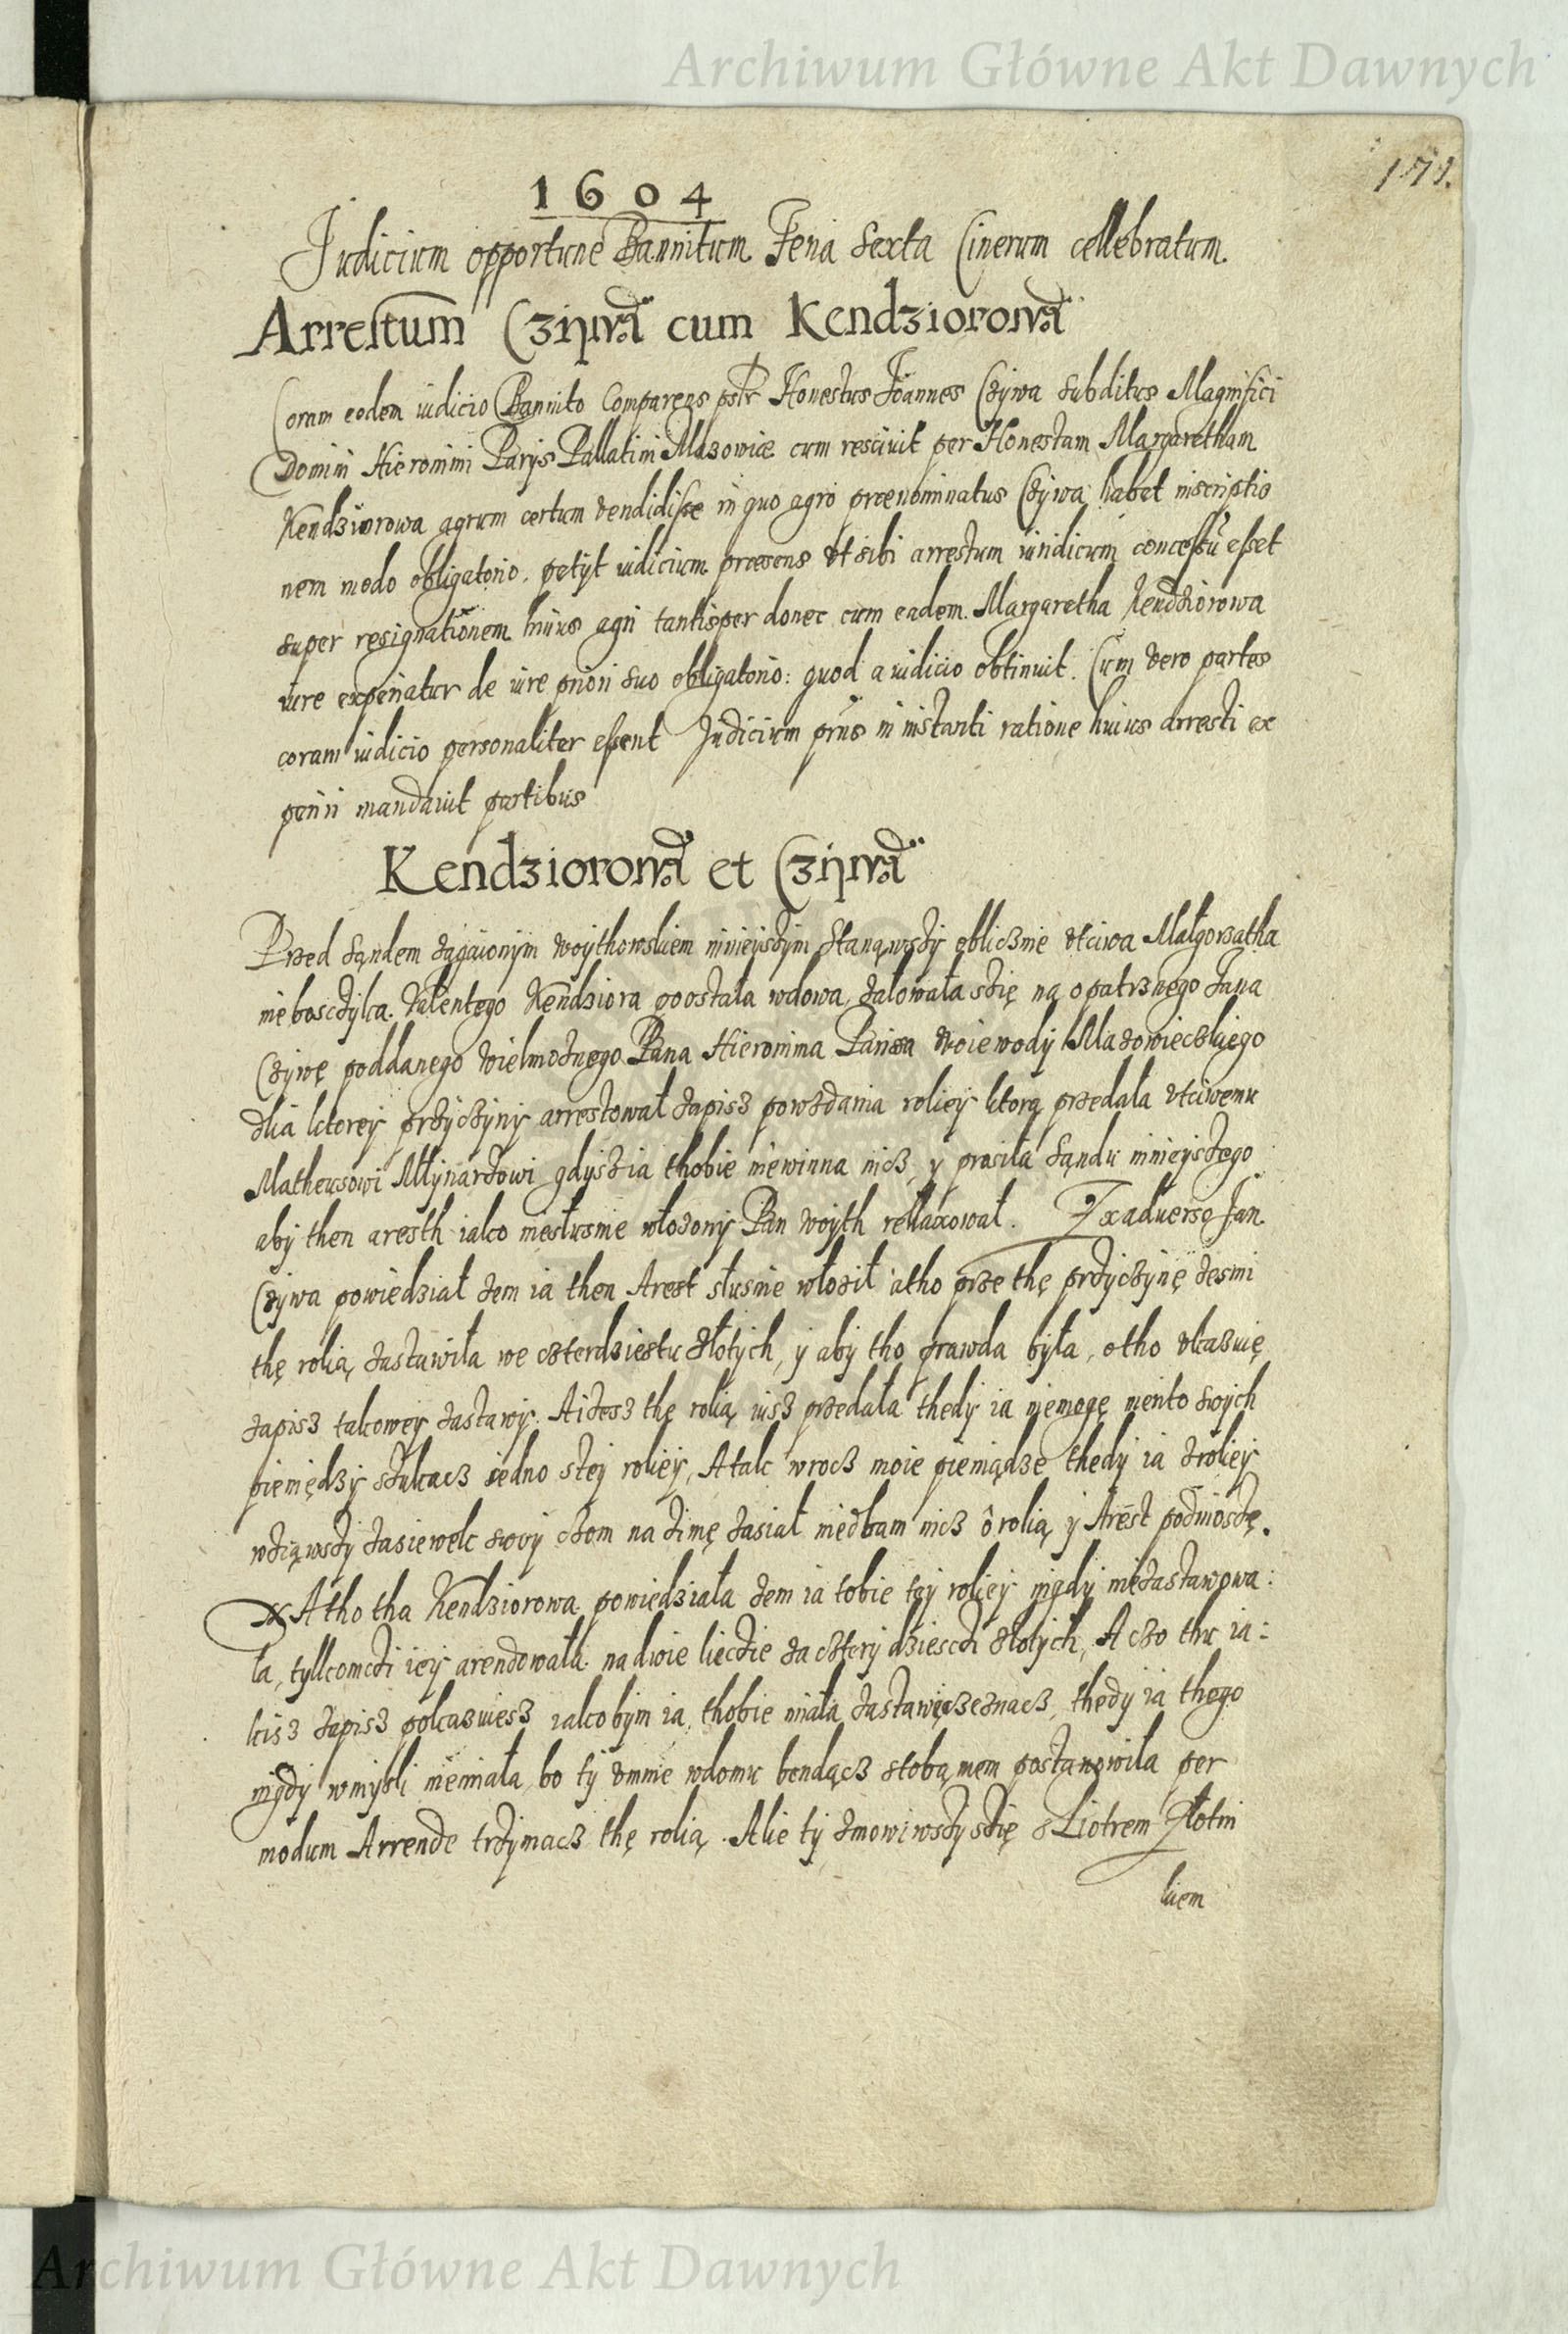 Archiwum Główne Akt Dawnych
171.
1604
Judicium opportune Bannitum Feria Sexta Cinerum cellebratum.
Arrestum Cziwa cum Kendziorowa
Coram eodem iudicio Bannito Comparens pstr Honestus Joannes Cziwa Subditus Magnifici
Domini Hieronimi Parys Pallatini Mazowiæ cum rescivit per Honestam Margaretham
Kendziorowa agrum certum vendidisse in quo agro prænominatus Cziwa habet inscriptio
nem modo obligatorio, petÿt iudicium præsens vt sibi arrestum iuridicum concessũ esset
super resignationem huius agri tantisper donec cum eadem Margaretha Kendziorowa
iure experiatur de iure priori suo obligatorio: quod a iudicio obtinuit. Cum vero partes
coram iudicio personaliter essent Judicium prũs in instanti ratione huius arresti ex
periri mandavit partibus
Kendziorowa et Cziwa
Przed Sąndem zagaionÿm woÿthowskiem ninieÿszÿm Stanąwszÿ oblicznie vtciwa Małgorzatha
nieboscżÿka Valentego Kendziora poostała wdowa, żalowała szię na opatrznego Jana
Cżÿwę poddanego wielmożnego Pana Hieronima Parisa woiewodÿ Mazowieczkiego
dlia ktoreÿ prżÿcżÿnÿ arrestował zapisz powzdania rolieÿ ktorą przedala vtciwemu
Matheusowi Młÿnarzowi gdÿsz ia thobie niewinna nicz, ÿ prosiła Sąndu ninieÿszego
abÿ then aresth iako niesłusnie włożonÿ Pan woÿth rellaxował. Ex adverso Jan
Cżÿwa powiedział żem ia then Arest słusnie włożił atho prze thę prżÿcżÿnę żesmi
thę rolią zastawiła we czterdziestu złotÿch, ÿ abÿ tho prawda bÿła, otho vkazuię
zapisz takoweÿ zastawÿ. A iżesz thę rolią iusz przedała thedÿ ia niemogę nento swÿch
pieniędzÿ szukacz iedno steÿ rolieÿ, A tak wrocz moie pieniądze thedÿ ia zrolieÿ
wżiąwszÿ zasiewek swoÿ cżom na zimę zasiał niedbam nicz o rolią ÿ Arest podniosżę.
A tho tha Kendziorowa powiedziała żem ia tobie teÿ rolieÿ nigdÿ niezastawowa:
ła, tyllkomczi ieÿ arendowała na dwie liecżie za czterÿdziesczi złotÿch, A czo thu ia:
kisz zapisz pokazuiesz iakobÿm ia thobie miała zastawę zeznacz, thedÿ ia thego
nigdÿ wmÿsli niemiała, bo tÿ vmnie wdomu bendącz stobąmem postanowiła per
modum Arrende trżÿmacz thę rolią. Alie tÿ zmowiwszÿszię z Liotrem Złotni
kiem
Archiwum Główne Akt Dawnych